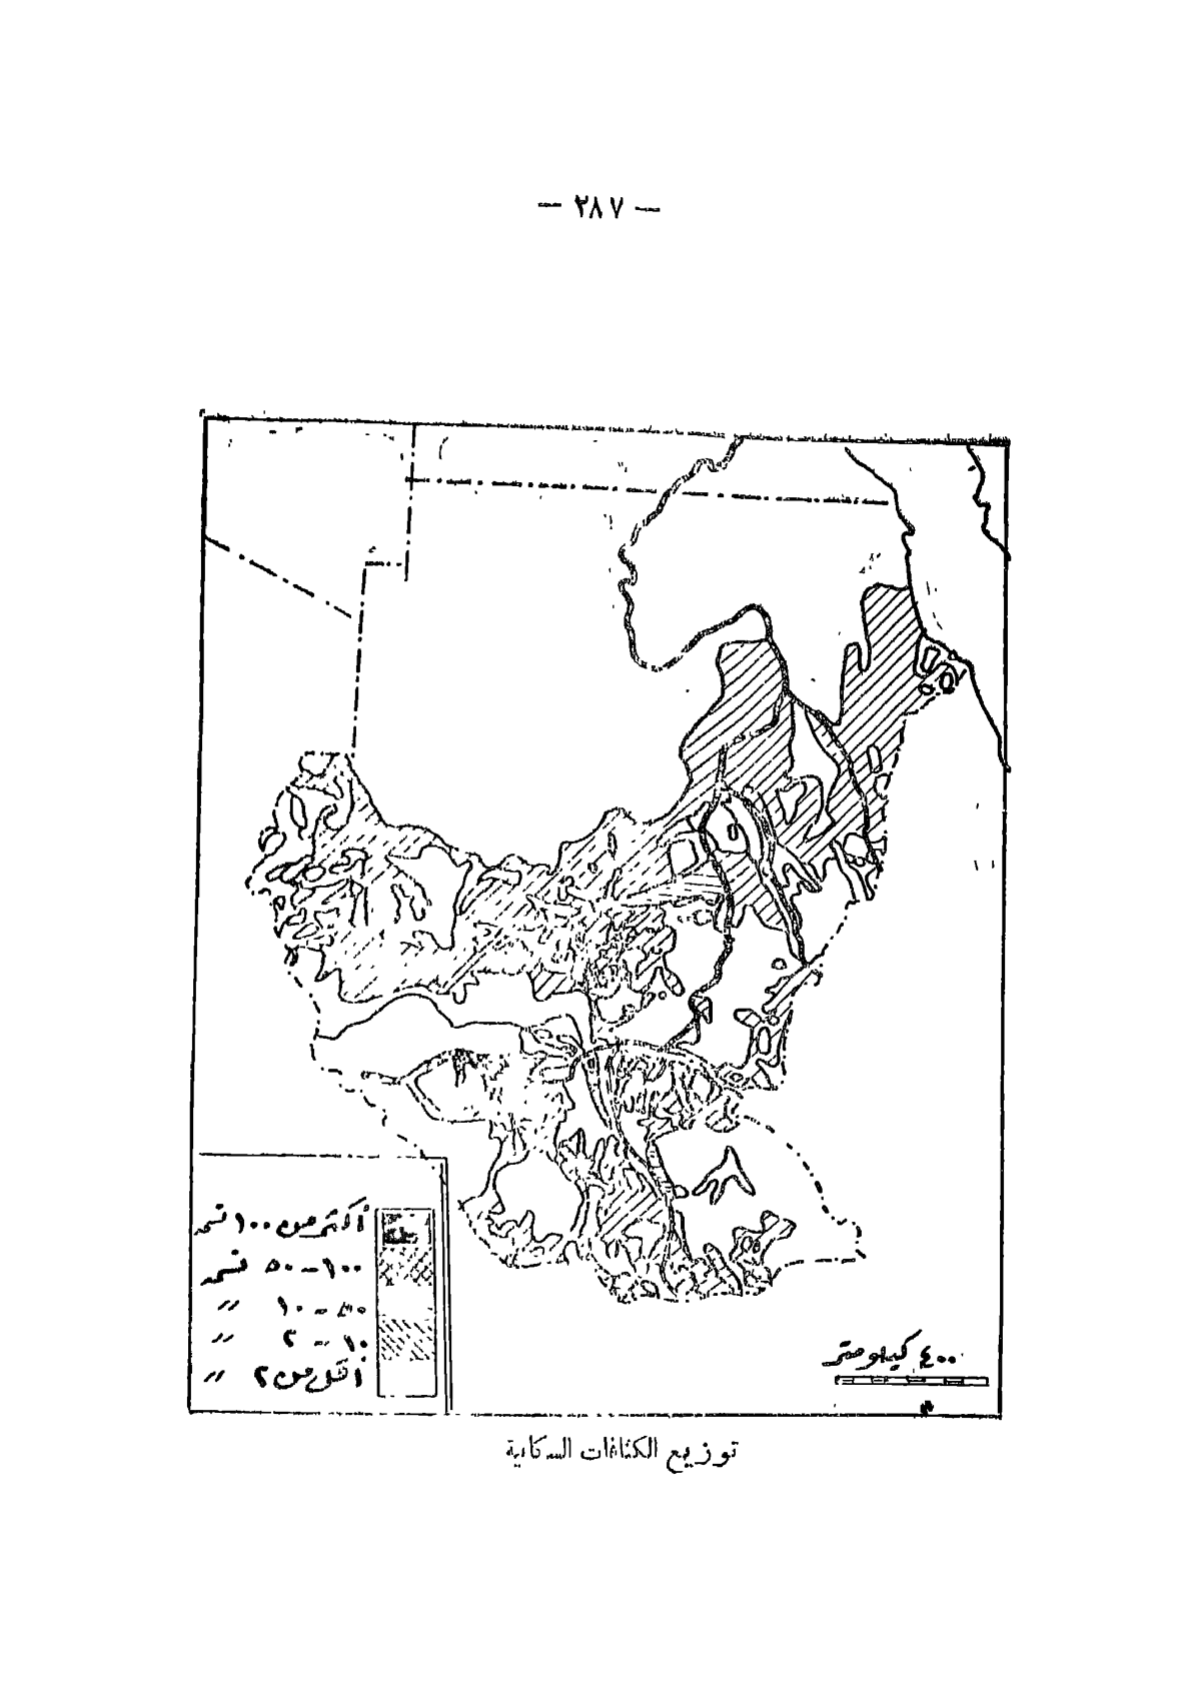 — ٢٨٧ —
أكثر من ١٠٠ نسمة
١٠٠ – ٥٠ نسمة
٥٠ – ١٠〃
١٠ – ٢〃
أقل من ٢〃
٤٠٠ كيلومتر
توزيع الكثافات السكانية